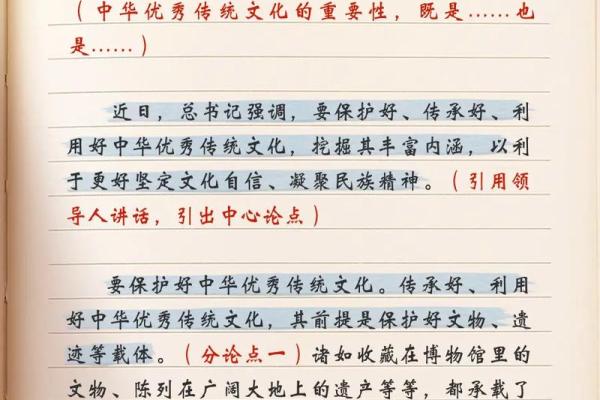 （中华优秀传统文化的重要性，既是……也
是……）
近日，总书记强调，要保护好、传承好、利
用好中华优秀传统文化，挖掘其丰富内涵，以利
于更好坚定文化自信、凝聚民族精神。（引用领
导人讲话，引出中心论点）
要保护好中华优秀传统文化。传承好、利用
好中华优秀传统文化，其前提是保护好文物、遗
迹等载体。（分论点一）诸如收藏在博物馆里的
文物、陈列在广阔大地上的遗产等等，都承载了